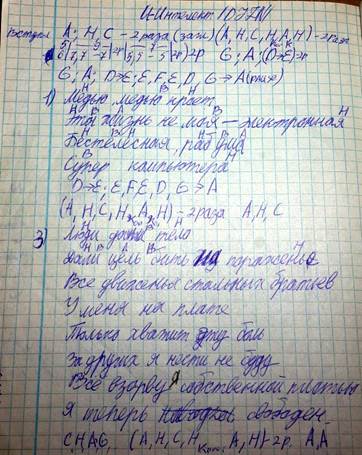 И-Интелект IDJZN
Вступл A; H, C – 2 раза (заги) (A, H, C, H, A, H) – 2 раза
G, A; D→E; E, F, E, D, G → A
1) Медью, медью проет
Эта жизнь не моя – электронная
Бестелесная, раб ума
Супер компьютера
D→E; E, F, E, D, G → A
(A, H, C, H, A, H) – 2 раза A, H, C
3) Люди дали тела
Дали цель бить на поражение
Все движенья стальных братьев
У меня на плате
Только хватит эту боль
За других я нести не буду
Всё взорву я собственной платы
Я теперь свободен.
C, H, A, G. (A, H, C, H, A, H) – 2 р. A, A